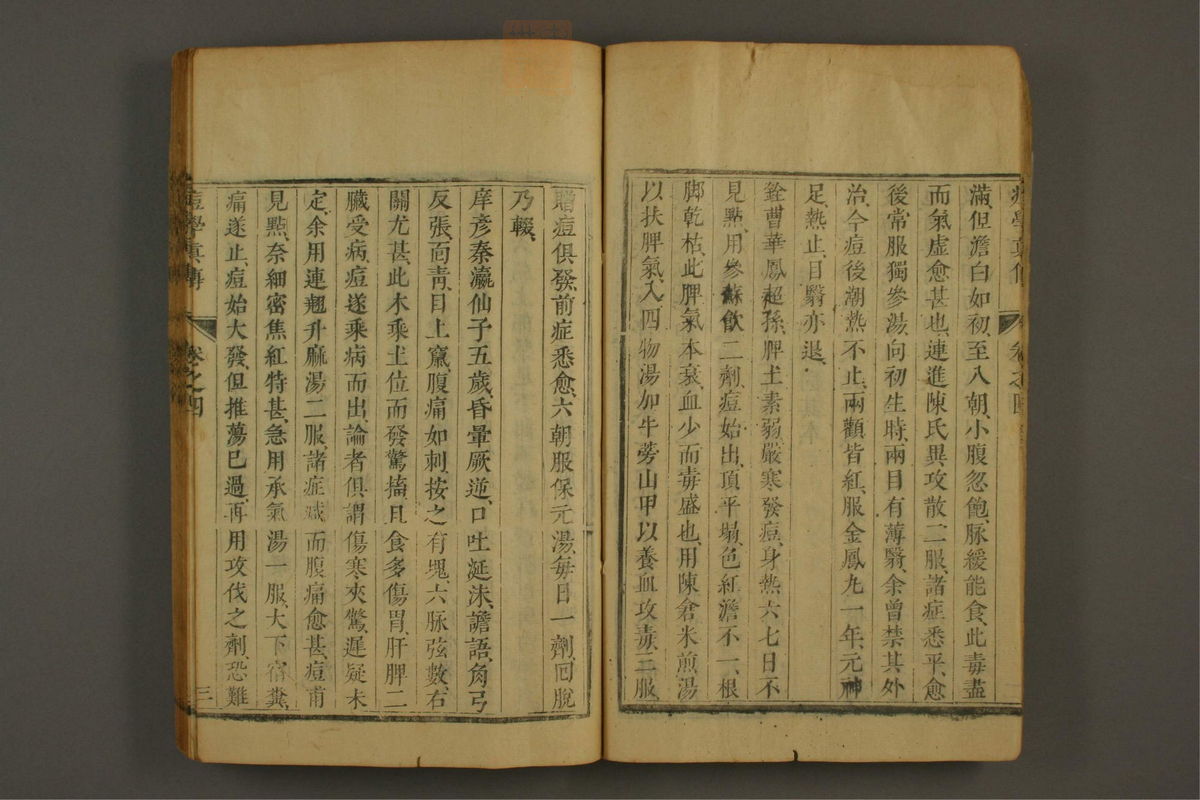 滿但澹白如初、至八朝、小腹忽飽、脉緩能食、此毒盡
而氣虛愈甚也、連進陳氏異攻散二服、諸症悉平、愈
後常服獨參湯、向初生時、兩目有薄翳、余曾禁其外
治、今痘後潮熱不止、兩顴皆紅、服金鳳九一年、元神
足、熱止、目翳亦退、
銓曹華鳳超孫、脾土素弱、嚴寒發痘、身熱六七日不
見點、用參蘇飲二劑、痘始出、頂平塌、色紅澹不一、根
脚乾枯、此脾氣本衰、血少而毒盛也、用陳倉米煎湯
以扶脾氣、入四物湯加牛蒡山甲以養血攻毒、三服
贈痘俱發、前症悉愈、六朝服保元湯、每日一劑、回脫
乃輟、
庠彥秦瀛仙子五歲、昏暈厥逆、口吐涎沫、譫語、角弓
反張、面靑、目上竄、腹痛如刺、按之有塊、六脉弦數、右
關尤甚、此木乘土位而發驚搐、且食多傷胃、肝脾二
臟受病、痘遂乘病而出、論者俱謂傷寒夾驚、遲疑未
定、余用連翹升麻湯二服、諸症減而腹痛愈甚、痘甫
見點、奈細密焦紅特甚、急用承氣湯一服、大下宿糞、
痛遂止、痘始大發、但推蕩已過、再用攻伐之劑、恐難
痘學眞傳
卷之四
三